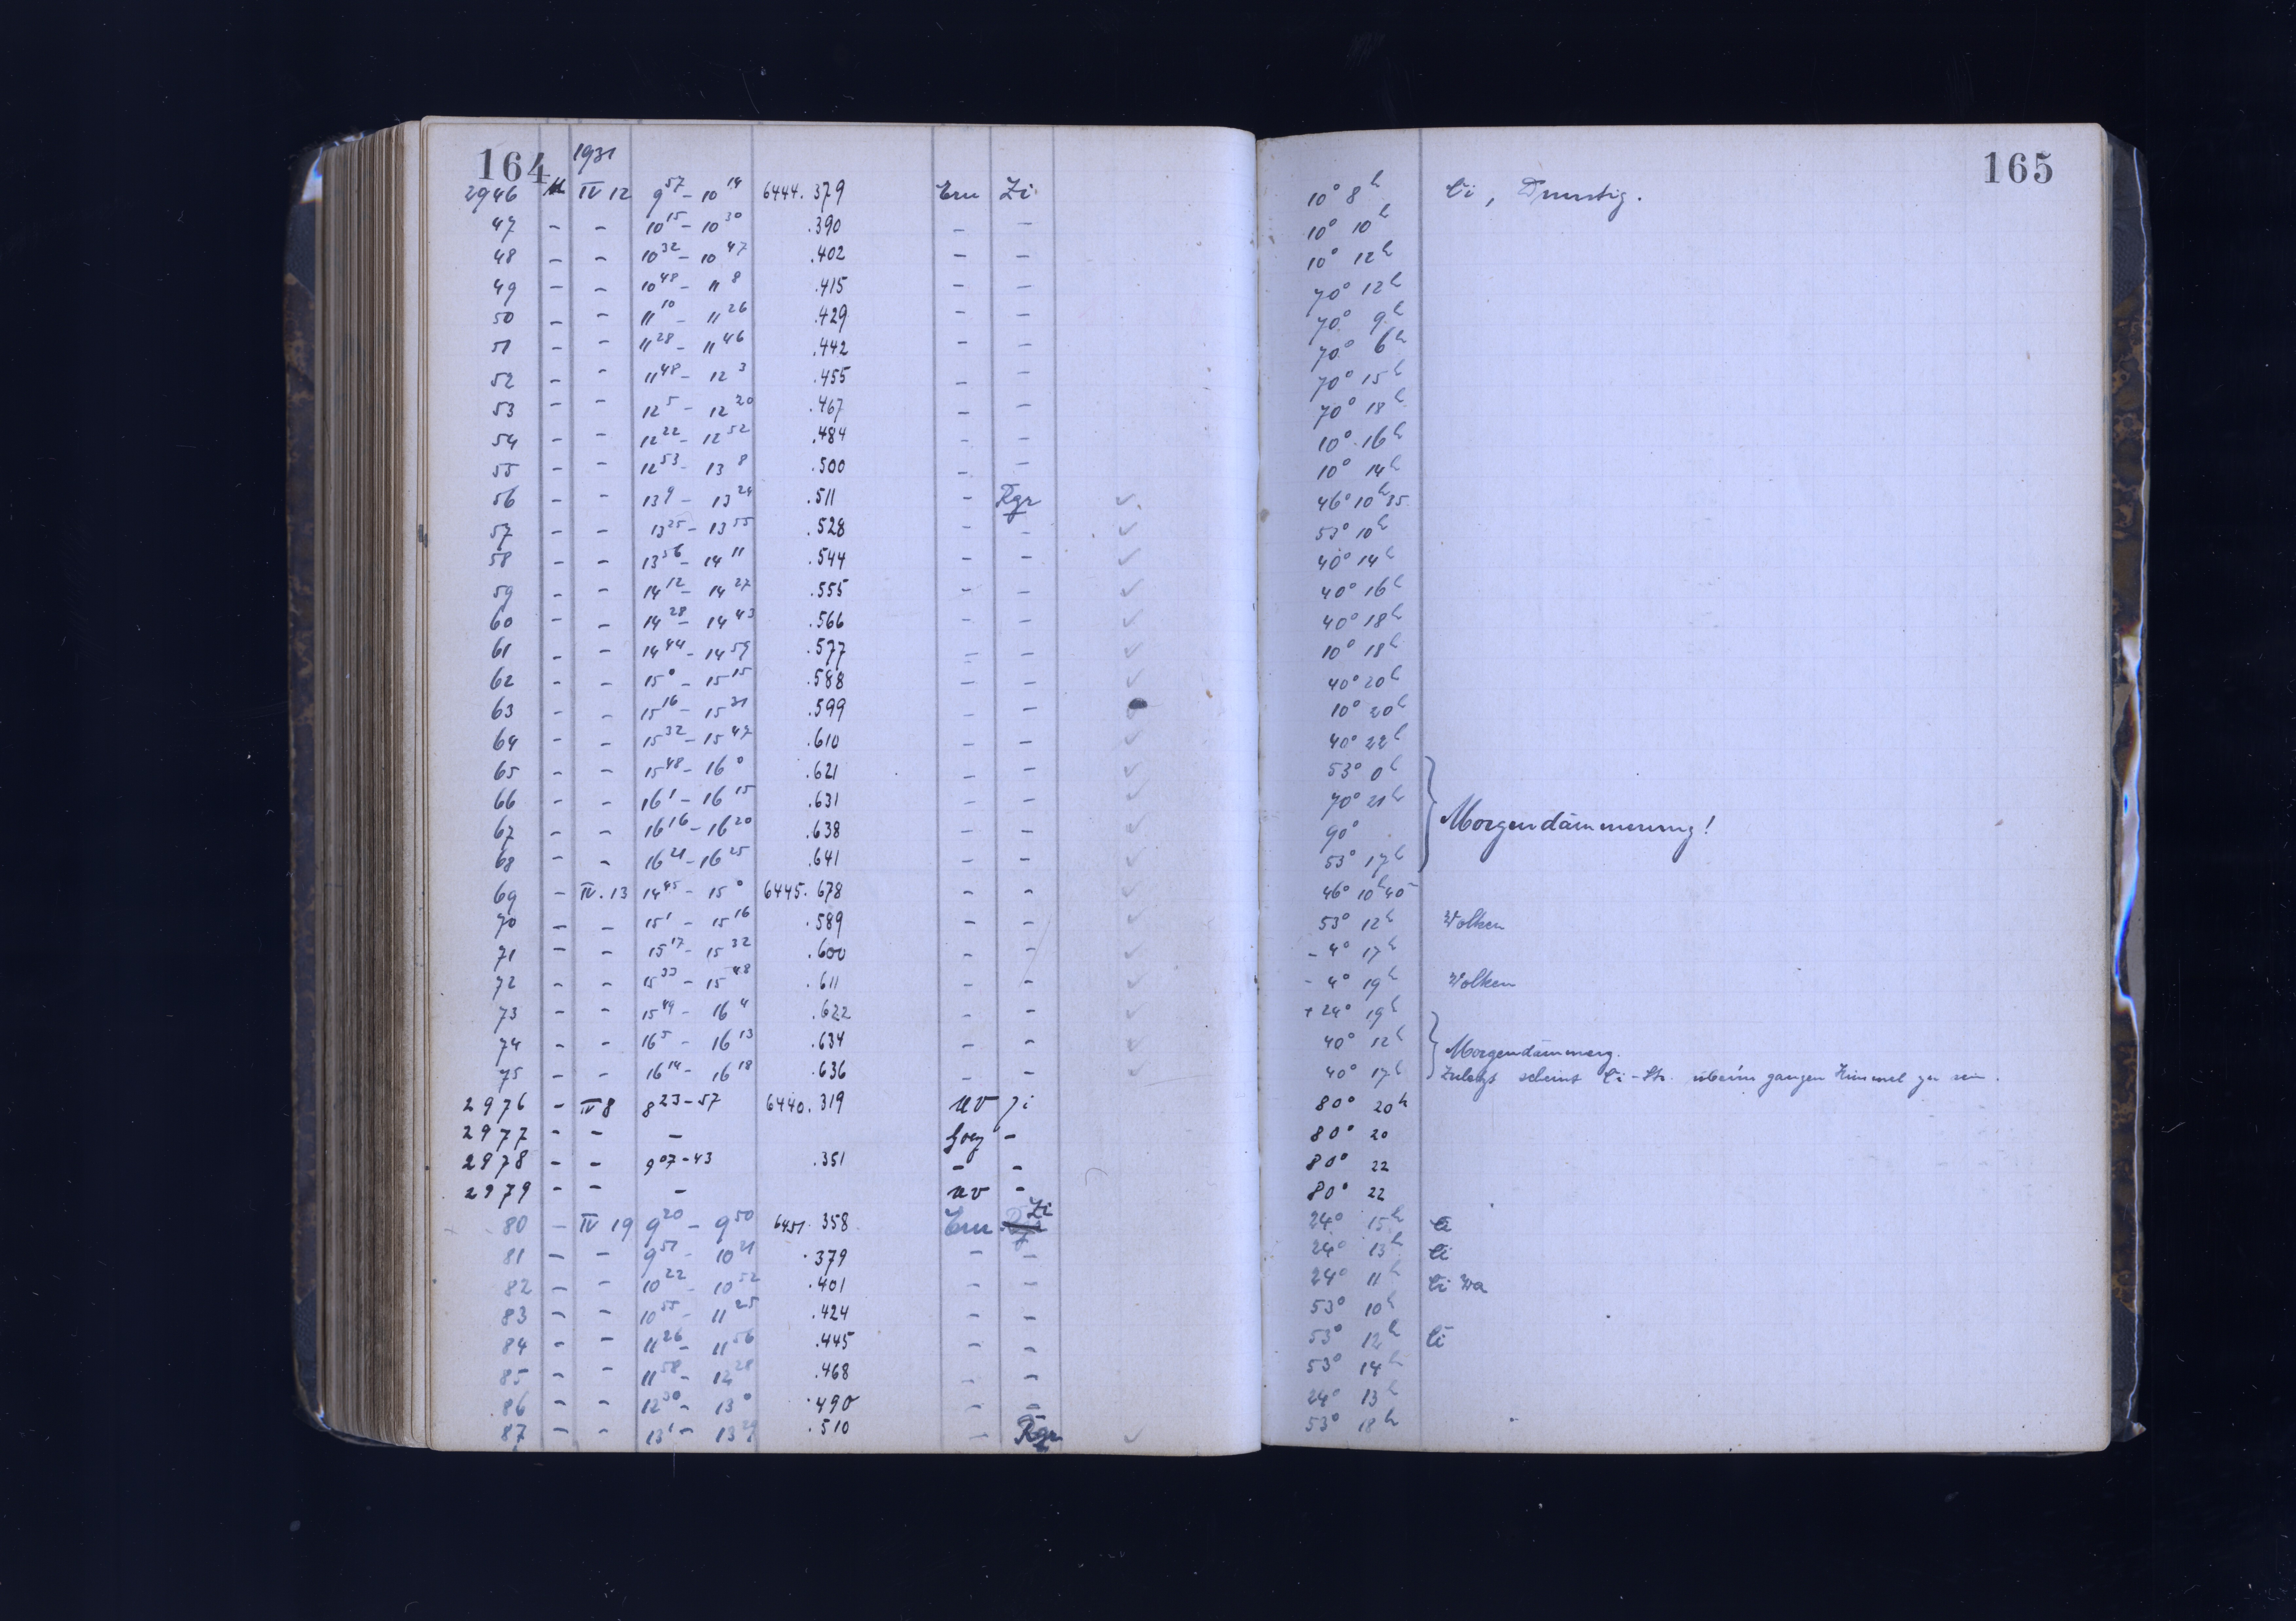 164 165
1931
2946 M IV 12 9 57 – 10 14 6444.379 Ern Zi 10° 8h Ci, Dunstig.
47 – – 10 15 – 10 30 .390 – – 10° 10h
48 – – 10 32 – 10 47 .402 – – 10° 12h
49 – – 10 48 – 11 8 .415 – – 70° 12h
50 – – 11 10 – 11 26 .429 – – 70° 9h
51 – – 11 28 – 11 46 .442 – – 70° 6h
52 – – 11 48 – 12 3 .455 – – 70° 15h
53 – – 12 5 – 12 20 .467 – – 70° 18h
54 – – 12 22 – 12 52 .484 – – 10° 16h
55 – – 12 53 – 13 8 .500 – – 10° 14h
56 – – 13 9 – 13 24 .511 – Rgr ✓ 46° 10h 35
57 – – 13 25 – 13 55 .528 – – ✓ 53° 10h
58 – – 13 56 – 14 11 .544 – – ✓ 40° 14h
59 – – 14 12 – 14 27 .555 – – ✓ 40° 16h
60 – – 14 28 – 14 43 .566 – – ✓ 40° 18h
61 – – 14 44 – 14 59 .577 – – ✓ 10° 18h
62 – – 15 0 – 15 15 .588 – – ✓ 40° 20h
63 – – 15 16 – 15 31 .599 – – ✓ 10° 20h
64 – – 15 32 – 15 47 .610 – – ✓ 40° 22h
65 – – 15 48 – 16 0 .621 – – ✓ 53° 0h
66 – – 16 1 – 16 15 .631 – – ✓ 70° 21h
67 – – 16 16 – 16 20 .638 – – ✓ 90° Morgendämmerung!
68 – – 16 21 – 16 25 .641 – – ✓ 53° 17h
69 – IV.13 14 45 – 15 0 6445.678 – – ✓ 46° 10h 40
70 – – 15 1 – 15 16 .589 – – ✓ 53° 12h Wolken
71 – – 15 17 – 15 32 .600 – – ✓ –4° 17h
72 – – 15 33 – 15 48 .611 – – ✓ –4° 19h Wolken
73 – – 15 49 – 16 4 .622 – – ✓ +24° 19h
74 – – 16 5 – 16 13 .634 – – ✓ 40° 12h Morgendämmerg.
75 – – 16 14 – 16 18 .636 – – ✓ 40° 17h Zuletzt scheint Ci-Str. über'm ganzen Himmel zu sein.
2976 – IV 8 8 23–57 6440.319 UV Zi 80° 20h
2977 – – – – 80° 20
2978 – – 9 07–43 .351 – – 80° 22
2979 – – – UV – 80° 22
80 – IV 19 9 20 – 9 50 6451.358 Ern Zi 24° 15h Ci
81 – – 9 51 – 10 21 .379 – – 24° 13h Ci
82 – – 10 22 – 10 52 .401 – – 24° 11h Ci Wo
83 – – 10 55 – 11 25 .424 – – 53° 10h
84 – – 11 26 – 11 56 .445 – – 53° 12h Ci
85 – – 11 58 – 12 28 .468 – – 53° 14h
86 – – 12 30 – 13 0 .490 – – 24° 13h
87 – – 13 1 – 13 29 .510 – Rgr ✓ 53° 18h